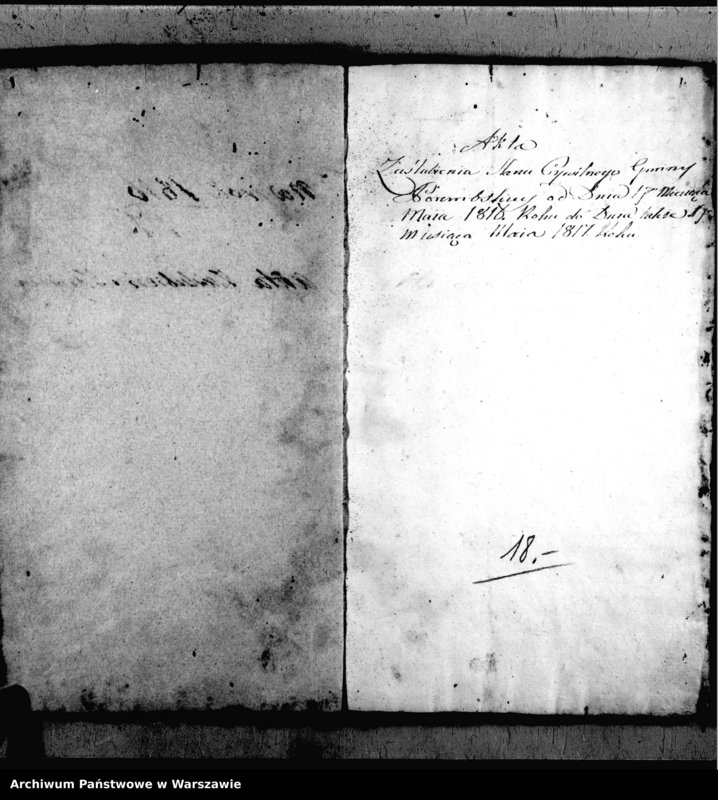 Akta
Zaślubienia Stanu Cywilnego Gminny
Porembskiey od Dnia 17 Miesiąca
Maia 1816 Roku do Dnia takze 17
Miesiąca Maia 1817 Roku
18.–
Archiwum Państwowe w Warszawie